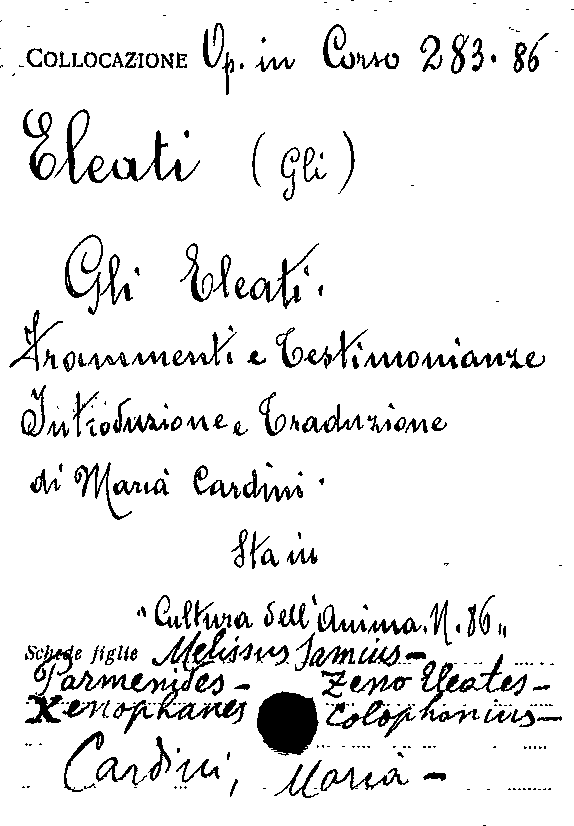 COLLOCAZIONE Op. in Corso 283. 86
Eleati (Gli)
Gli Eleati.
Frammenti e Testimonianze
Introduzione e Traduzione
di Maria Cardini.
Sta in
"Cultura dell'Anima. N. 86"
Schede figlie Melissus Samius -
Parmenides - Zeno Eleates -
Xenophanes Colophonius -
Cardini, Maria -